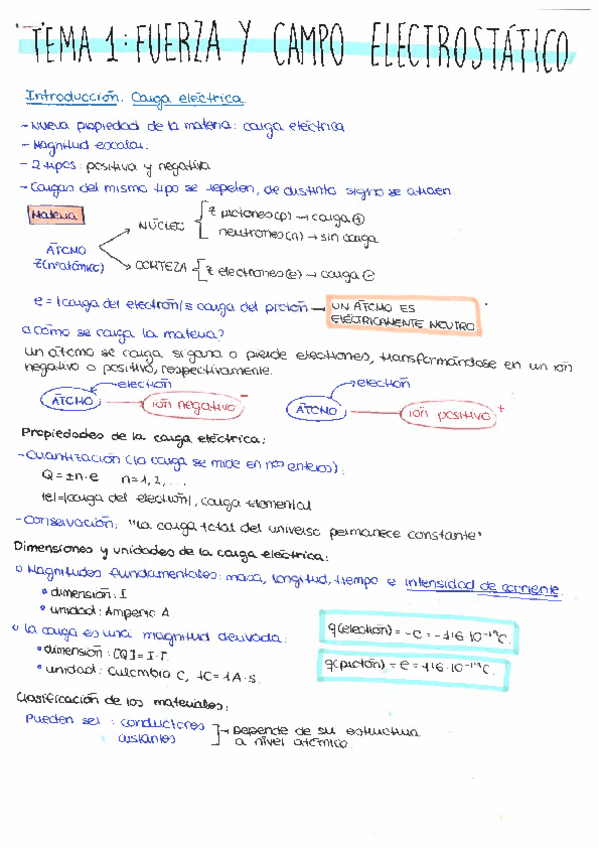 TEMA 1: FUERZA Y CAMPO ELECTROSTÁTICO
Introducción. Carga eléctrica.
- Nueva propiedad de la materia: carga eléctrica
- Magnitud escalar.
- 2 tipos: positiva y negativa
- Cargas del mismo tipo se repelen, de distinto signo se atraen
Materia
NÚCLEO
Z protones (p) → carga ⊕
neutrones (n) → sin carga
ÁTOMO
Z (nº atómico)
CORTEZA
Z electrones (e) → carga ⊖
e = |carga del electrón| ≡ carga del protón → UN ÁTOMO ES
ELÉCTRICAMENTE NEUTRO
¿Cómo se carga la materia?
Un átomo se carga si gana o pierde electrones, transformándose en un ión
negativo o positivo, respectivamente.
electrón
ÁTOMO
ión negativo -
electrón
ÁTOMO
ión positivo +
Propiedades de la carga eléctrica:
- Cuantización (la carga se mide en nos enteros):
Q = ±n·e n = 1, 2, ...
|e| = |carga del electrón|, carga elemental
- Conservación: "la carga total del universo permanece constante"
Dimensiones y unidades de la carga eléctrica:
o Magnitudes fundamentales: masa, longitud, tiempo e intensidad de corriente.
• dimensión: I
• unidad: Amperio A
o la carga es una magnitud derivada:
• dimensión: [Q] = I·T.
• unidad: Culombio C, 1C = 1A·s.
q(electrón) = -e = -1'6·10⁻¹⁹C.
q(protón) = e = 1'6·10⁻¹⁹C.
Clasificación de los materiales:
Pueden ser: conductores
aislantes
→ Depende de su estructura
a nivel atómico.